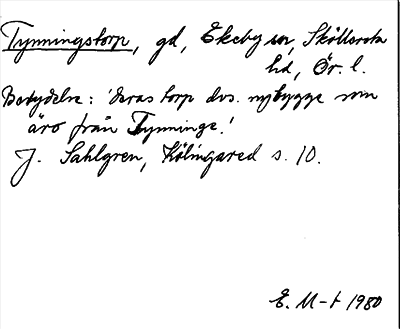 Tynningstorp, gd, Ekeby sn, Sköllersta
hd, Ör. l.
Betydelse: 'deras torp dvs. nybygge som
äro från Tynninge.'
J. Sahlgren, Kölingared s. 10.
E. M-t 1980